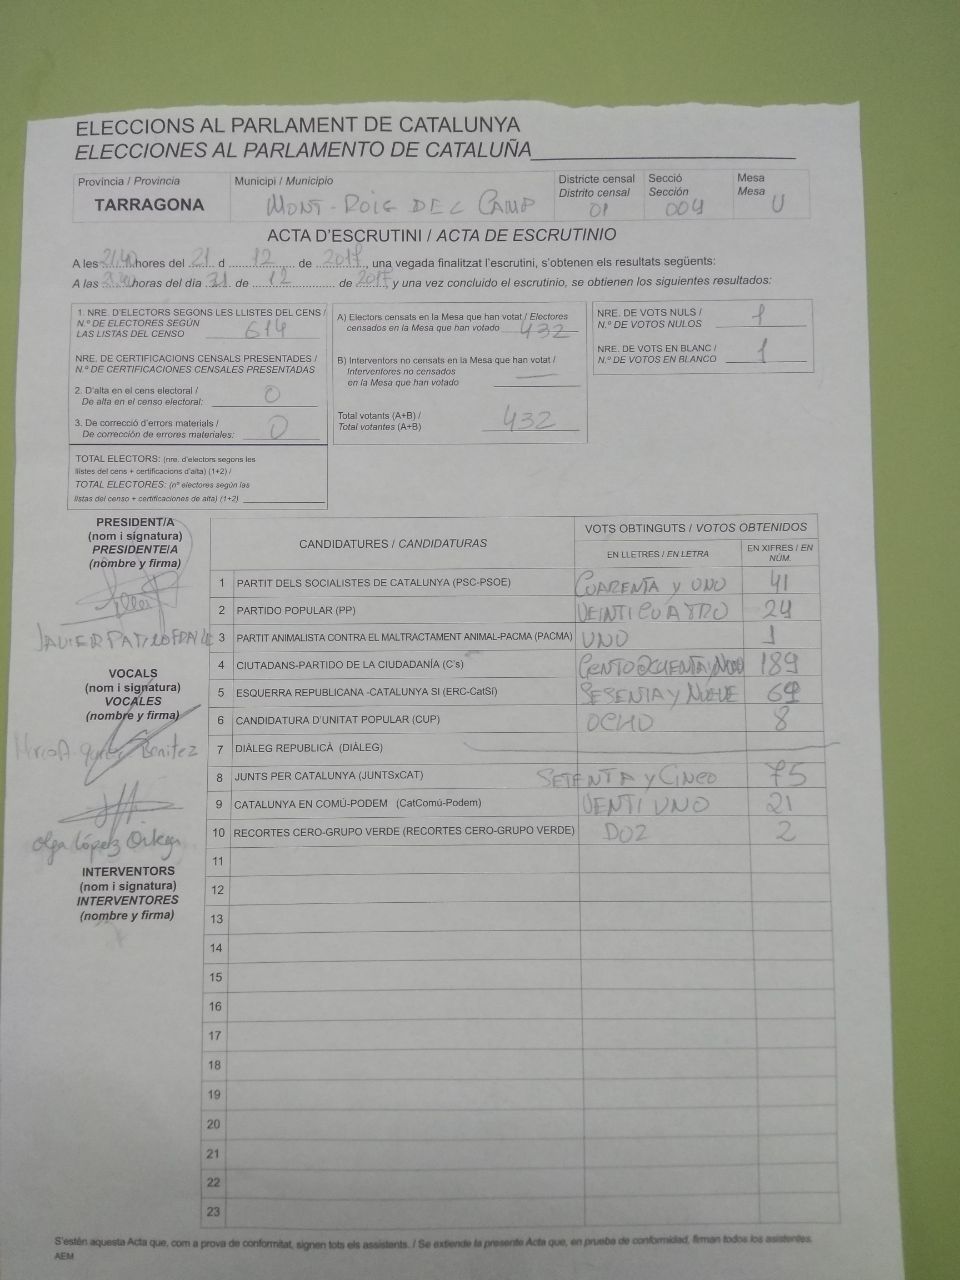 ELECCIONS AL PARLAMENT DE CATALUNYA
ELECCIONES AL PARLAMENTO DE CATALUÑA
Provincia / Provincia
TARRAGONA
Municipi / Municipio
MONT-ROIG DEL CAMP
Districte censal
Distrito censal
01
Secció
Sección
004
Mesa
Mesa
U
ACTA D'ESCRUTINI / ACTA DE ESCRUTINIO
A les 21,40 hores del 21 d 12 de 2017, una vegada finalitzat l'escrutini, s'obtenen els resultats següents:
A las horas del día 21 de 12 de 2017 y una vez concluido el escrutinio, se obtienen los siguientes resultados:
1. NRE. D'ELECTORS SEGONS LES LLISTES DEL CENS /
N.º DE ELECTORES SEGÚN
LAS LISTAS DEL CENSO 614
NRE. DE CERTIFICACIONS CENSALS PRESENTADES /
N.º DE CERTIFICACIONES CENSALES PRESENTADAS
2. D'alta en el cens electoral /
De alta en el censo electoral: 0
3. De correcció d'errors materials /
De corrección de errores materiales: 0
TOTAL ELECTORS: (nre. d'electors segons les
llistes del cens + certificacions d'alta) (1+2) /
TOTAL ELECTORES: (nº electores según las
listas del censo + certificaciones de alta) (1+2)
A) Electors censats en la Mesa que han votat / Electores
censados en la Mesa que han votado 432
B) Interventors no censats en la Mesa que han votat /
Interventores no censados
en la Mesa que han votado
Total votants (A+B) /
Total votantes (A+B) 432
NRE. DE VOTS NULS /
N.º DE VOTOS NULOS 1
NRE. DE VOTS EN BLANC /
N.º DE VOTOS EN BLANCO 1
PRESIDENT/A
(nom i signatura)
PRESIDENTE/A
(nombre y firma)
JAVIER
VOCALS
(nom i signatura)
VOCALES
(nombre y firma)
Benitez
Olga López Ortega
INTERVENTORS
(nom i signatura)
INTERVENTORES
(nombre y firma)
CANDIDATURES / CANDIDATURAS
VOTS OBTINGUTS / VOTOS OBTENIDOS
EN LLETRES / EN LETRA
EN XIFRES / EN
NÚM.
1 PARTIT DELS SOCIALISTES DE CATALUNYA (PSC-PSOE) CUARENTA y UNO 41
2 PARTIDO POPULAR (PP) VEINTICUATRO 24
3 PARTIT ANIMALISTA CONTRA EL MALTRACTAMENT ANIMAL-PACMA (PACMA) UNO 1
4 CIUTADANS-PARTIDO DE LA CIUDADANÍA (C's) 189
5 ESQUERRA REPUBLICANA -CATALUNYA SI (ERC-CatSí) SESENTA y NUEVE 69
6 CANDIDATURA D'UNITAT POPULAR (CUP) OCHO 8
7 DIÀLEG REPUBLICÀ (DIÀLEG)
8 JUNTS PER CATALUNYA (JUNTSxCAT) SETENTA y CINCO 75
9 CATALUNYA EN COMÚ-PODEM (CatComú-Podem) VENTIUNO 21
10 RECORTES CERO-GRUPO VERDE (RECORTES CERO-GRUPO VERDE) DOZ 2
11
12
13
14
15
16
17
18
19
20
21
22
23
S'estén aquesta Acta que, com a prova de conformitat, signen tots els assistents. / Se extiende la presente Acta que, en prueba de conformidad, firman todos los asistentes.
AEM